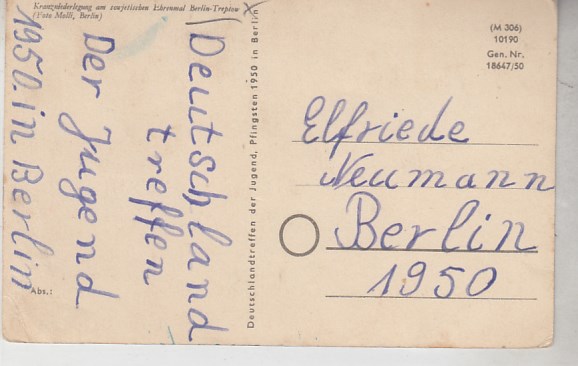 Kranzniederlegung am sowjetischen Ehrenmal Berlin-Treptow
(Foto Molli, Berlin)
Deutschland
treffen
Der Jugend
1950 in Berlin
Abs.:
Deutschlandtreffen der Jugend, Pfingsten 1950 in Berlin
(M 306)
10190
Gen. Nr.
18647/50
Elfriede
Neumann
Berlin
1950